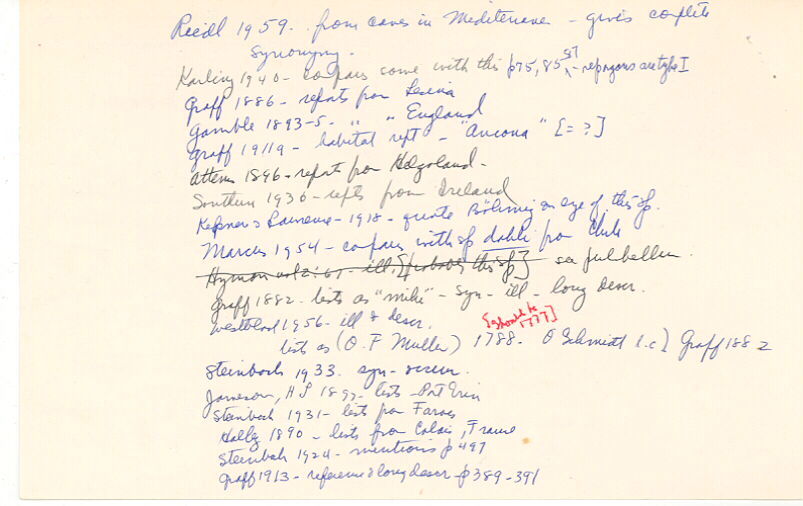 Riedl 1959. from caves in Mediterranean - gives complete
synonymy.
Karling 1940 - compares some with this p75, 85 - reprog ous are type I
Graff 1886 - reports from Lesina
Gamble 1893-5 - " " England
Graff 1911a - habitat rept - "Ancona" [=?]
Attems 1896 - reports from Helgoland -
Southern 1936 - repts from Ireland
Kepner & Lawrence - 1918 - quote Böhmig on eye of this sp.
Marcus 1954 - compares with sp dahli from Chile
Hyman vol 2: 67 - ill. [probably this sp] see
Graff 1882 - lists as " " - syn - ill - long descr.
Westblad 1956 - ill & descr.
[should be 1777]
lists as (O. F. Muller) 1788. O Schmidt l.c.] Graff 1882
Steinbock 1933. syn -
Jameson, H L 1897 - lists - Port Erin
Steinbock 1931 - lists from Faroes
Hallez 1890 - lists from Calais, France
Steinbock 1924 - mentions p 497
Graff 1913 - reference & long descr - p 389-391